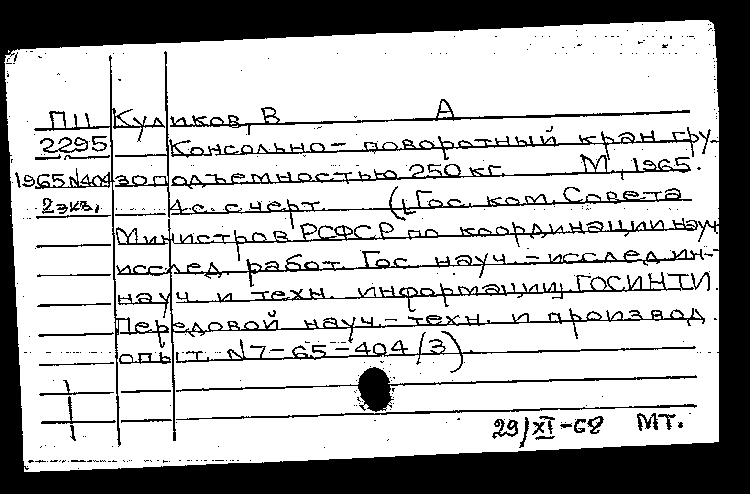 П11 Куликов, В А
2295 Консольно-поворотный кран гру-
1965 N404 зоподъемностью 250 кг. М, 1965.
2 экз. 4 с. с черт. (Гос. ком. Совета
Министров РСФСР по координации науч
исслед. работ. Гос науч.-исслед ин-
науч. и техн. информации. ГОСИНТИ.
Передовой науч.-техн. и производ.
опыт. N7-65-404/3).
29/XI-68 МТ.